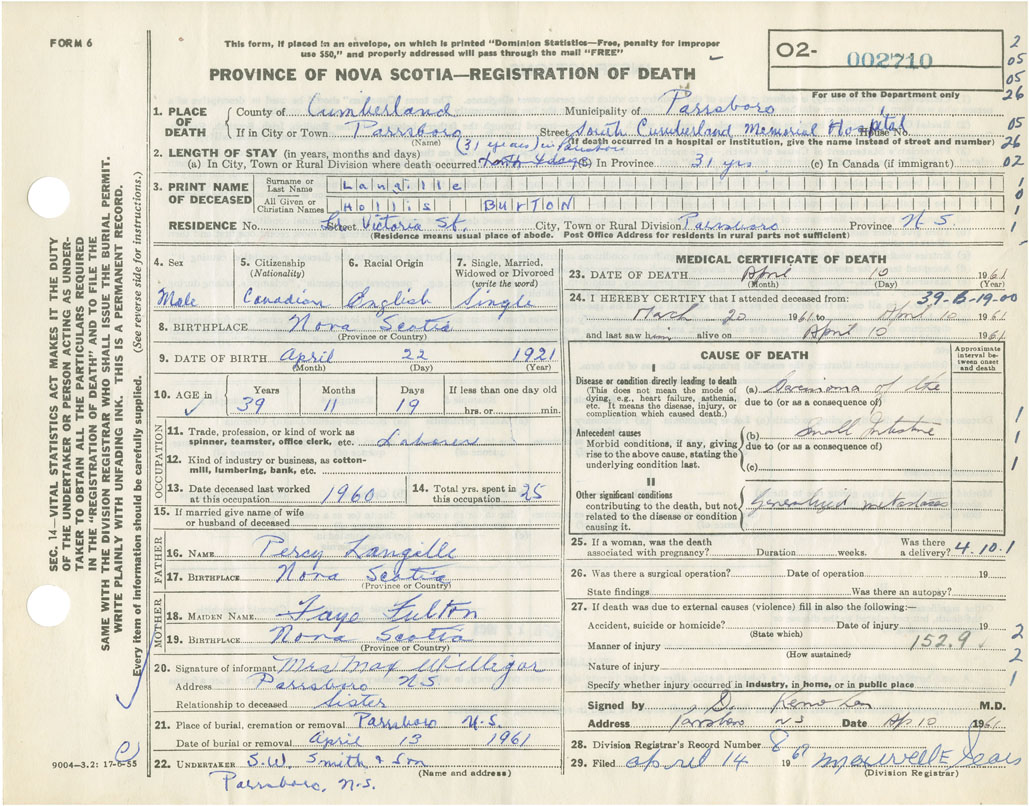 FORM 6
This form, if placed in an envelope, on which is printed "Dominion Statistics—Free, penalty for improper
use $50," and properly addressed will pass through the mail "FREE"
PROVINCE OF NOVA SCOTIA—REGISTRATION OF DEATH
O2- 002710
For use of the Department only
2
05
05
26
05
26
02
1
0
1
1
SEC. 14—VITAL STATISTICS ACT MAKES IT THE DUTY
OF THE UNDERTAKER OR PERSON ACTING AS UNDER-
TAKER TO OBTAIN ALL THE PARTICULARS REQUIRED
IN THE "REGISTRATION OF DEATH" AND TO FILE THE
SAME WITH THE DIVISION REGISTRAR WHO SHALL ISSUE THE BURIAL PERMIT.
WRITE PLAINLY WITH UNFADING INK. THIS IS A PERMANENT RECORD.
Every item of information should be carefully supplied. (See reverse side for instructions.)
1. PLACE OF DEATH
County of Cumberland Municipality of Parrsboro
If in City or Town Parrsboro Street South Cumberland Memorial Hospital House No.
(Name) (If death occurred in a hospital or institution, give the name instead of street and number)
2. LENGTH OF STAY (in years, months and days) (31 years) in Parrsboro
(a) In City, Town or Rural Division where death occurred (b) In Province 31 yrs (c) In Canada (if immigrant)
3. PRINT NAME OF DECEASED
Surname or Last Name Langille
All Given or Christian Names Hollis BURTON
RESIDENCE No. Street Victoria St. City, Town or Rural Division Parrsboro Province N S
(Residence means usual place of abode. Post Office Address for residents in rural parts not sufficient)
4. Sex
Male
5. Citizenship
(Nationality)
Canadian
6. Racial Origin
English
7. Single, Married,
Widowed or Divorced
(write the word)
Single
8. BIRTHPLACE Nova Scotia
(Province or Country)
9. DATE OF BIRTH April 22 1921
(Month) (Day) (Year)
10. AGE
Years Months Days If less than one day old
39 11 19 hrs. or min.
OCCUPATION
11. Trade, profession or kind of work as
spinner, teamster, office clerk, etc. Laborer
12. Kind of industry or business, as cotton-
mill, lumbering, bank, etc.
13. Date deceased last worked
at this occupation 1960
14. Total yrs. spent in
this occupation 25
15. If married give name of wife
or husband of deceased
FATHER
16. NAME Percy Langille
17. BIRTHPLACE Nova Scotia
(Province or Country)
MOTHER
18. MAIDEN NAME Faye Fulton
19. BIRTHPLACE Nova Scotia
(Province or Country)
20. Signature of informant Mrs Max Whilligar
Address Parrsboro N S
Relationship to deceased Sister
21. Place of burial, cremation or removal Parrsboro N.S.
Date of burial or removal April 13 1961
22. UNDERTAKER S.W. Smith & Son
(Name and address)
Parrsboro, N.S.
9004-3.2: 17-6-55
MEDICAL CERTIFICATE OF DEATH
23. DATE OF DEATH April 10 1961
(Month) (Day) (Year)
24. I HEREBY CERTIFY that I attended deceased from: 39-B-19-00
March 20 1961 to April 10 1961
and last saw him alive on April 10 1961
CAUSE OF DEATH
Approximate
interval be-
tween onset
and death
I
Disease or condition directly leading to death
(This does not mean the mode of
dying, e.g., heart failure, asthenia,
etc. It means the disease, injury, or
complication which caused death.)
(a) of the
due to (or as a consequence of)
Antecedent causes
Morbid conditions, if any, giving
rise to the above cause, stating the
underlying condition last.
(b) Small Intestine
due to (or as a consequence of)
(c)
II
Other significant conditions
contributing to the death, but not
related to the disease or condition
causing it.
Generalized metastases
1
1
1
25. If a woman, was the death
associated with pregnancy? Duration weeks. Was there
a delivery? 4.10.1
26. Was there a surgical operation? Date of operation 19
State findings Was there an autopsy?
27. If death was due to external causes (violence) fill in also the following:—
Accident, suicide or homicide? Date of injury 19
(State which)
Manner of injury 152.9
(How sustained)
Nature of injury
Specify whether injury occurred in industry, in home, or in public place
2
2
1
Signed by M.D.
Address Parrsboro NS Date Ap 10 1961
28. Division Registrar's Record Number 8
29. Filed april 14 19
(Division Registrar)